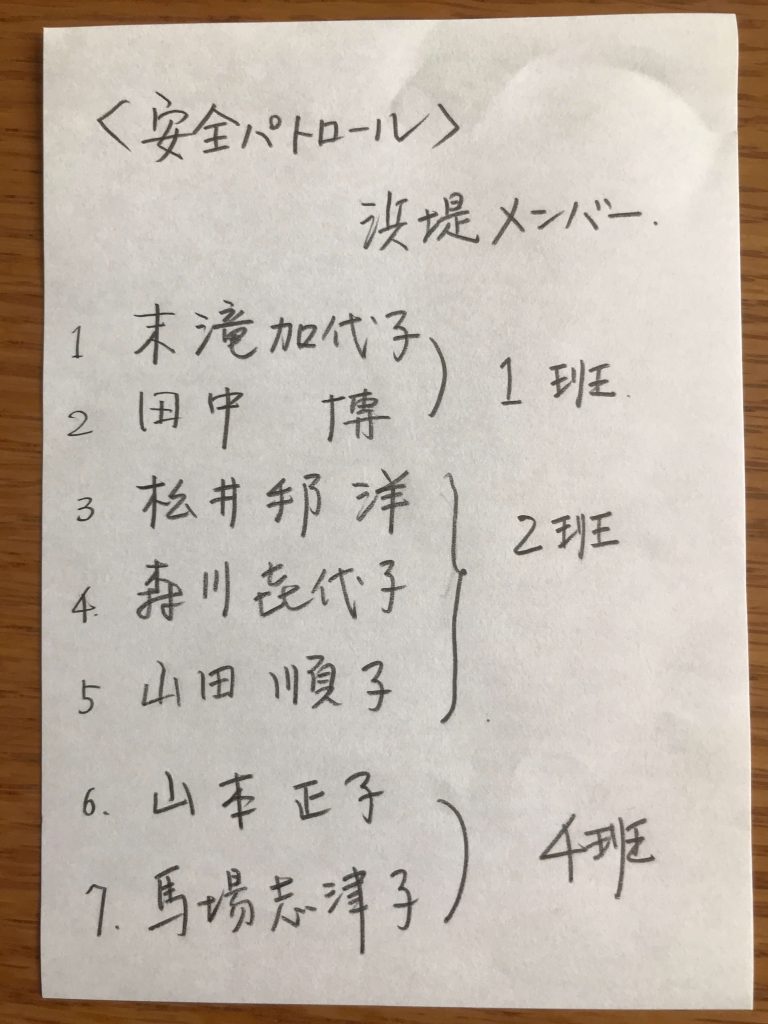 <安全パトロール>
浜堤メンバー.
1 末滝加代子
2 田中 博
1班.
3 松井邦洋
4. 森川㐂代子
5 山田順子
2班
6. 山本正子
7. 馬場志津子
4班